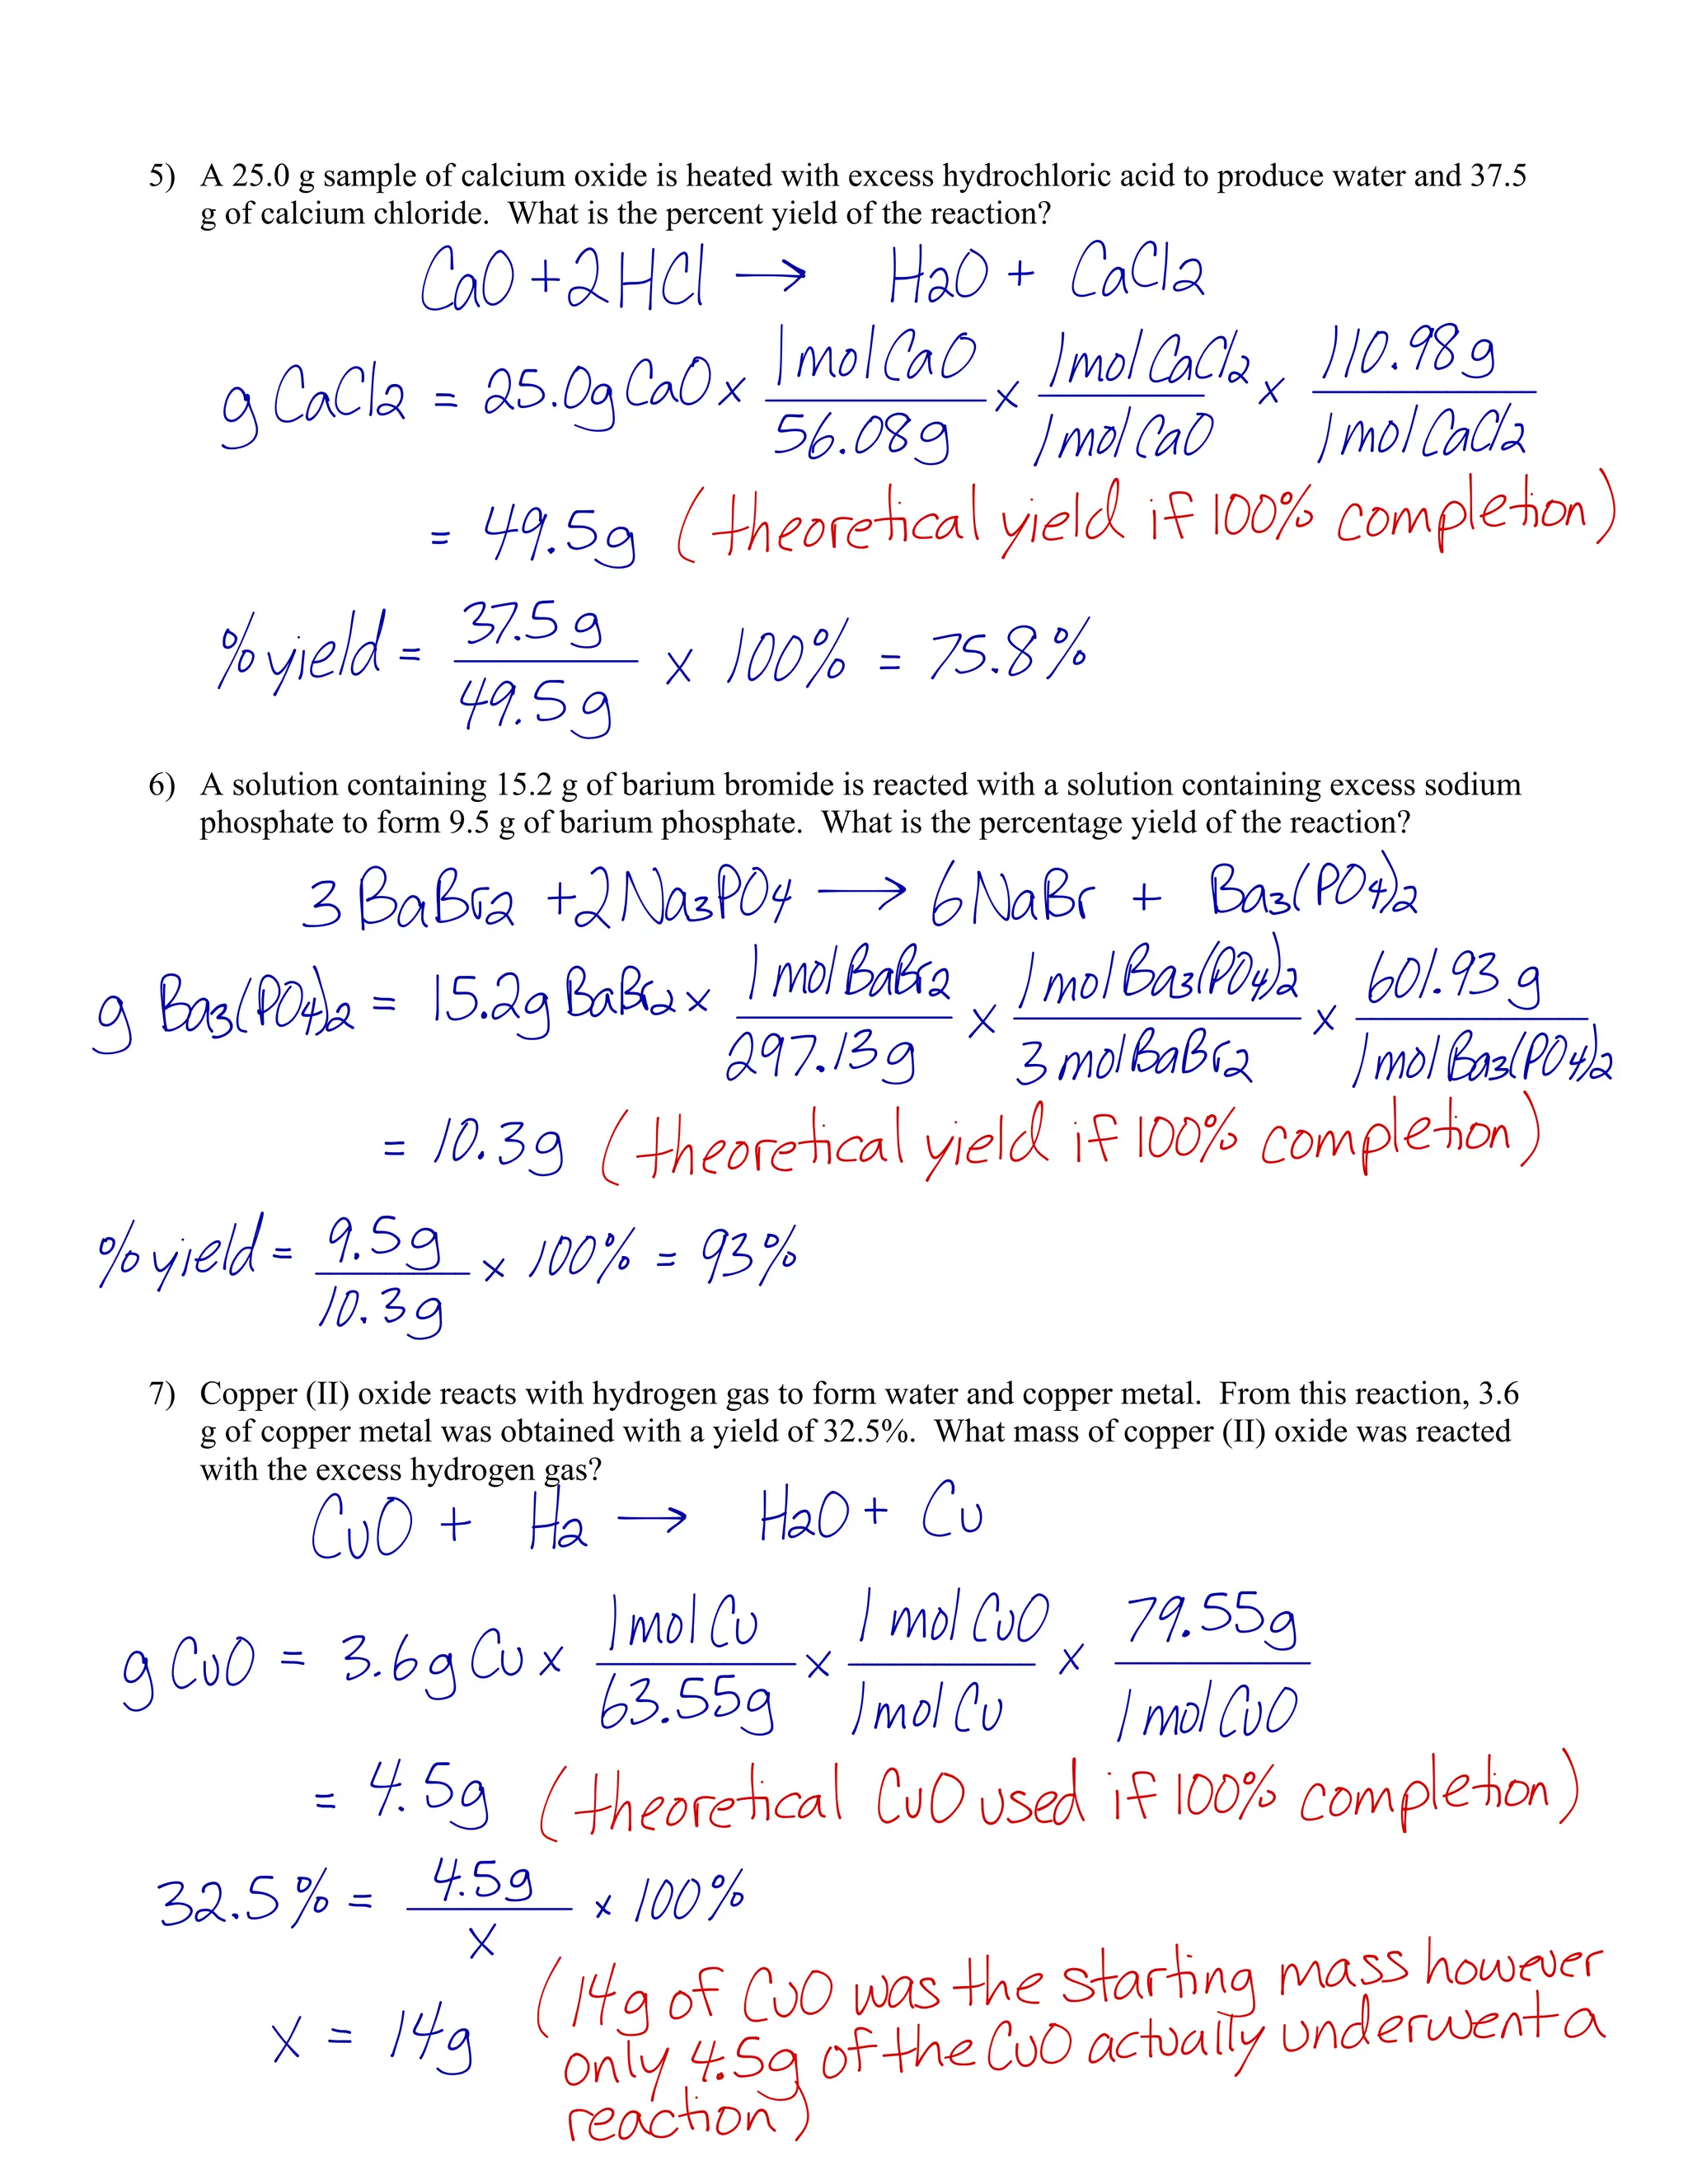 5) A 25.0 g sample of calcium oxide is heated with excess hydrochloric acid to produce water and 37.5
g of calcium chloride. What is the percent yield of the reaction?
CaO + 2HCl → H2O + CaCl2
g CaCl2 = 25.0g CaO x 1 mol CaO / 56.08g x 1 mol CaCl2 / 1 mol CaO x 110.98g / 1 mol CaCl2
= 49.5g (theoretical yield if 100% completion)
% yield = 37.5g / 49.5g x 100% = 75.8%
6) A solution containing 15.2 g of barium bromide is reacted with a solution containing excess sodium
phosphate to form 9.5 g of barium phosphate. What is the percentage yield of the reaction?
3 BaBr2 + 2Na3PO4 → 6NaBr + Ba3(PO4)2
g Ba3(PO4)2 = 15.2g BaBr2 x 1 mol BaBr2 / 297.13g x 1 mol Ba3(PO4)2 / 3 mol BaBr2 x 601.93 g / 1 mol Ba3(PO4)2
= 10.3g (theoretical yield if 100% completion)
% yield = 9.5g / 10.3g x 100% = 93%
7) Copper (II) oxide reacts with hydrogen gas to form water and copper metal. From this reaction, 3.6
g of copper metal was obtained with a yield of 32.5%. What mass of copper (II) oxide was reacted
with the excess hydrogen gas?
CuO + H2 → H2O + Cu
g CuO = 3.6g Cu x 1 mol Cu / 63.55g x 1 mol CuO / 1 mol Cu x 79.55g / 1 mol CuO
= 4.5g (theoretical CuO used if 100% completion)
32.5% = 4.5g / x x 100%
x = 14g (14g of CuO was the starting mass however
only 4.5g of the CuO actually underwent a
reaction)